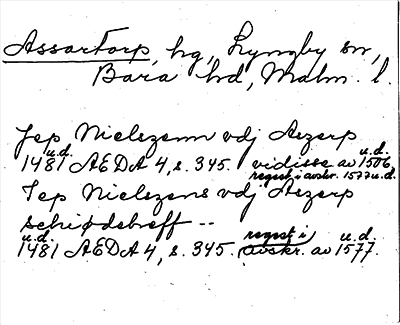 Assartorp, hg, Lyngby sn,
Bara hd, Malm. l.
Jep Nielszenn vdj Aszerp
u.d. u.d.
1481 AEDA 4, s. 345. vidisse av 1506
regest i avskr. 1577 u.d.
Jep Nielszens vdj Aszerp
schiødebreff --
u.d. regest i u.d.
1481 AEDA 4, s. 345. avskr. av 1577.